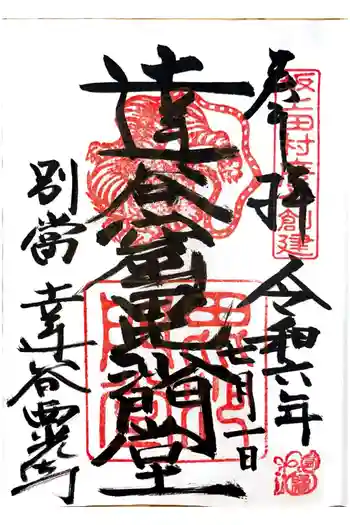 奉拝
坂上田村麻呂創建
令和六年
七月一日
達谷窟毘沙門堂
別當
達谷西光寺